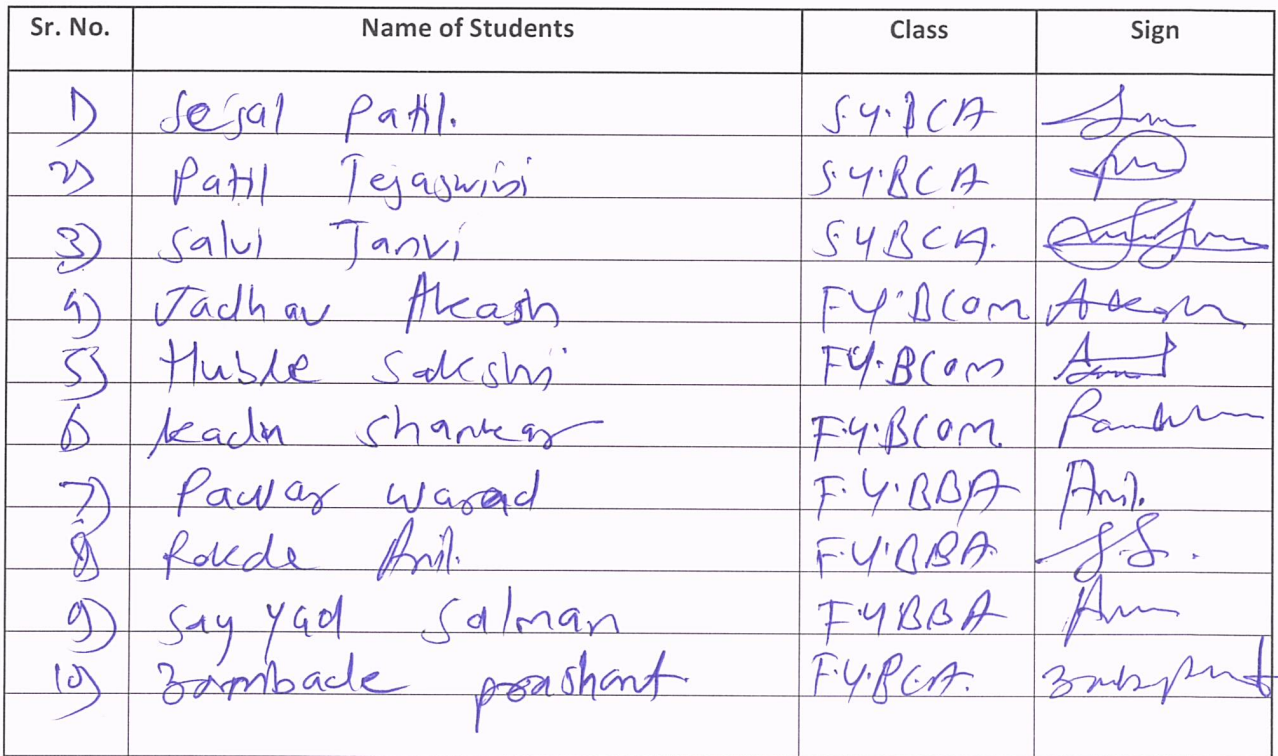 Sr. No. Name of Students Class Sign
1) Sejal Patil. S.Y.BCA
2) Patil Tejaswini S.Y.BCA
3) Salvi Tanvi S Y BCA.
4) Jadhav Akash F Y.BCOM Akash
5) Huble Sakshi F Y.BCOM
6 kadam Shankar F.Y.BCOM.
7) Pawar Warad F.Y.BBA Anil.
8) Rokde Anil. F.Y.BBA. S.S.
9) Sayyad Salman F Y BBA
10) Zambade prashant. F.Y.BCA.